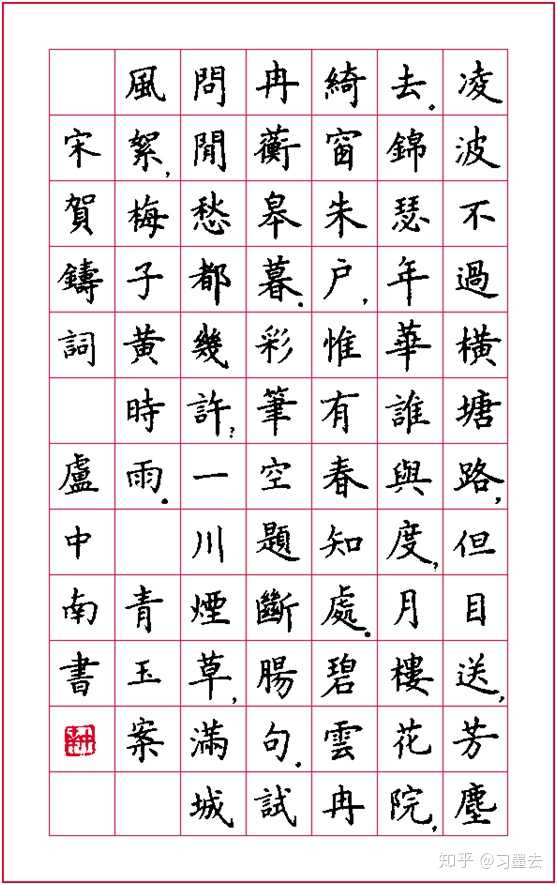 凌波不過橫塘路,但目送,芳塵
去。錦瑟年華誰與度,月樓花院,
綺窗朱户,惟有春知處。碧雲冉
冉蘅皋暮.彩筆空題斷腸句.試
問閒愁都幾許?一川煙草,滿城
風絮,梅子黃時雨。青玉案
宋賀鑄詞盧中南書
知乎 @习墨去